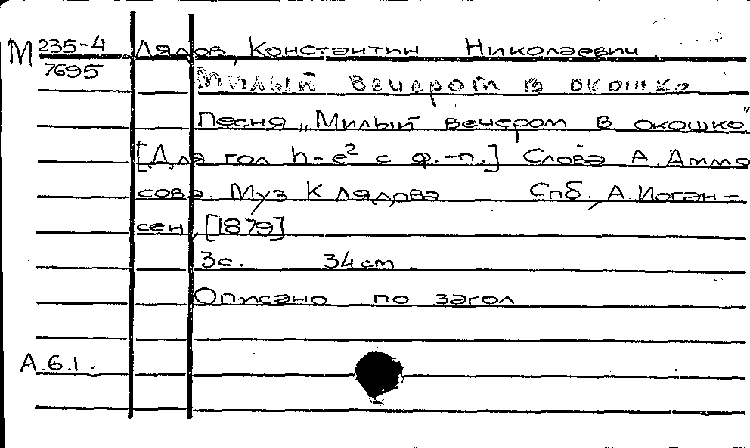 М 235-4 Лядов, Константин Николаевич
7695 Милый вечером в окошко
Песня „Милый вечером в окошко"
[Для гол h-e² с ф.-п.] Слова А. Аммо
сова. Муз К Лядова Спб, А. Иоган-
сен, [1879]
3с. 34 cm
Описано по загол
А.6.1.